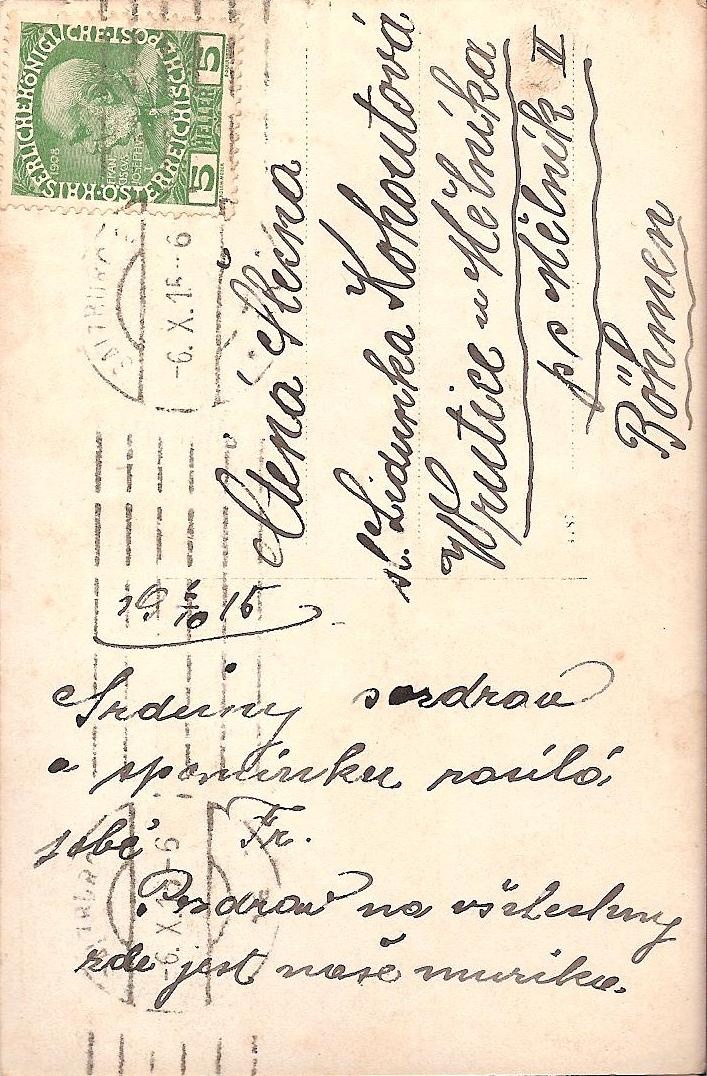 KAISERLICHE KÖNIGLICHE ÖSTERREICHISCHE POST
5 HELLER 5
1908
FRANZ JOSEPH I
SALZBURG
-6.X.15--6
Ctěná Slečna
sl. Lidunka Kohoutová
Wrutice u Mělníka
p. Mělník II
Böhmen
19 5/10 15
Srdečný pozdrav
a spomínku zasílá
tobě Fr.
Pozdrav na všechny
zde jest naše muzika.
-6.X